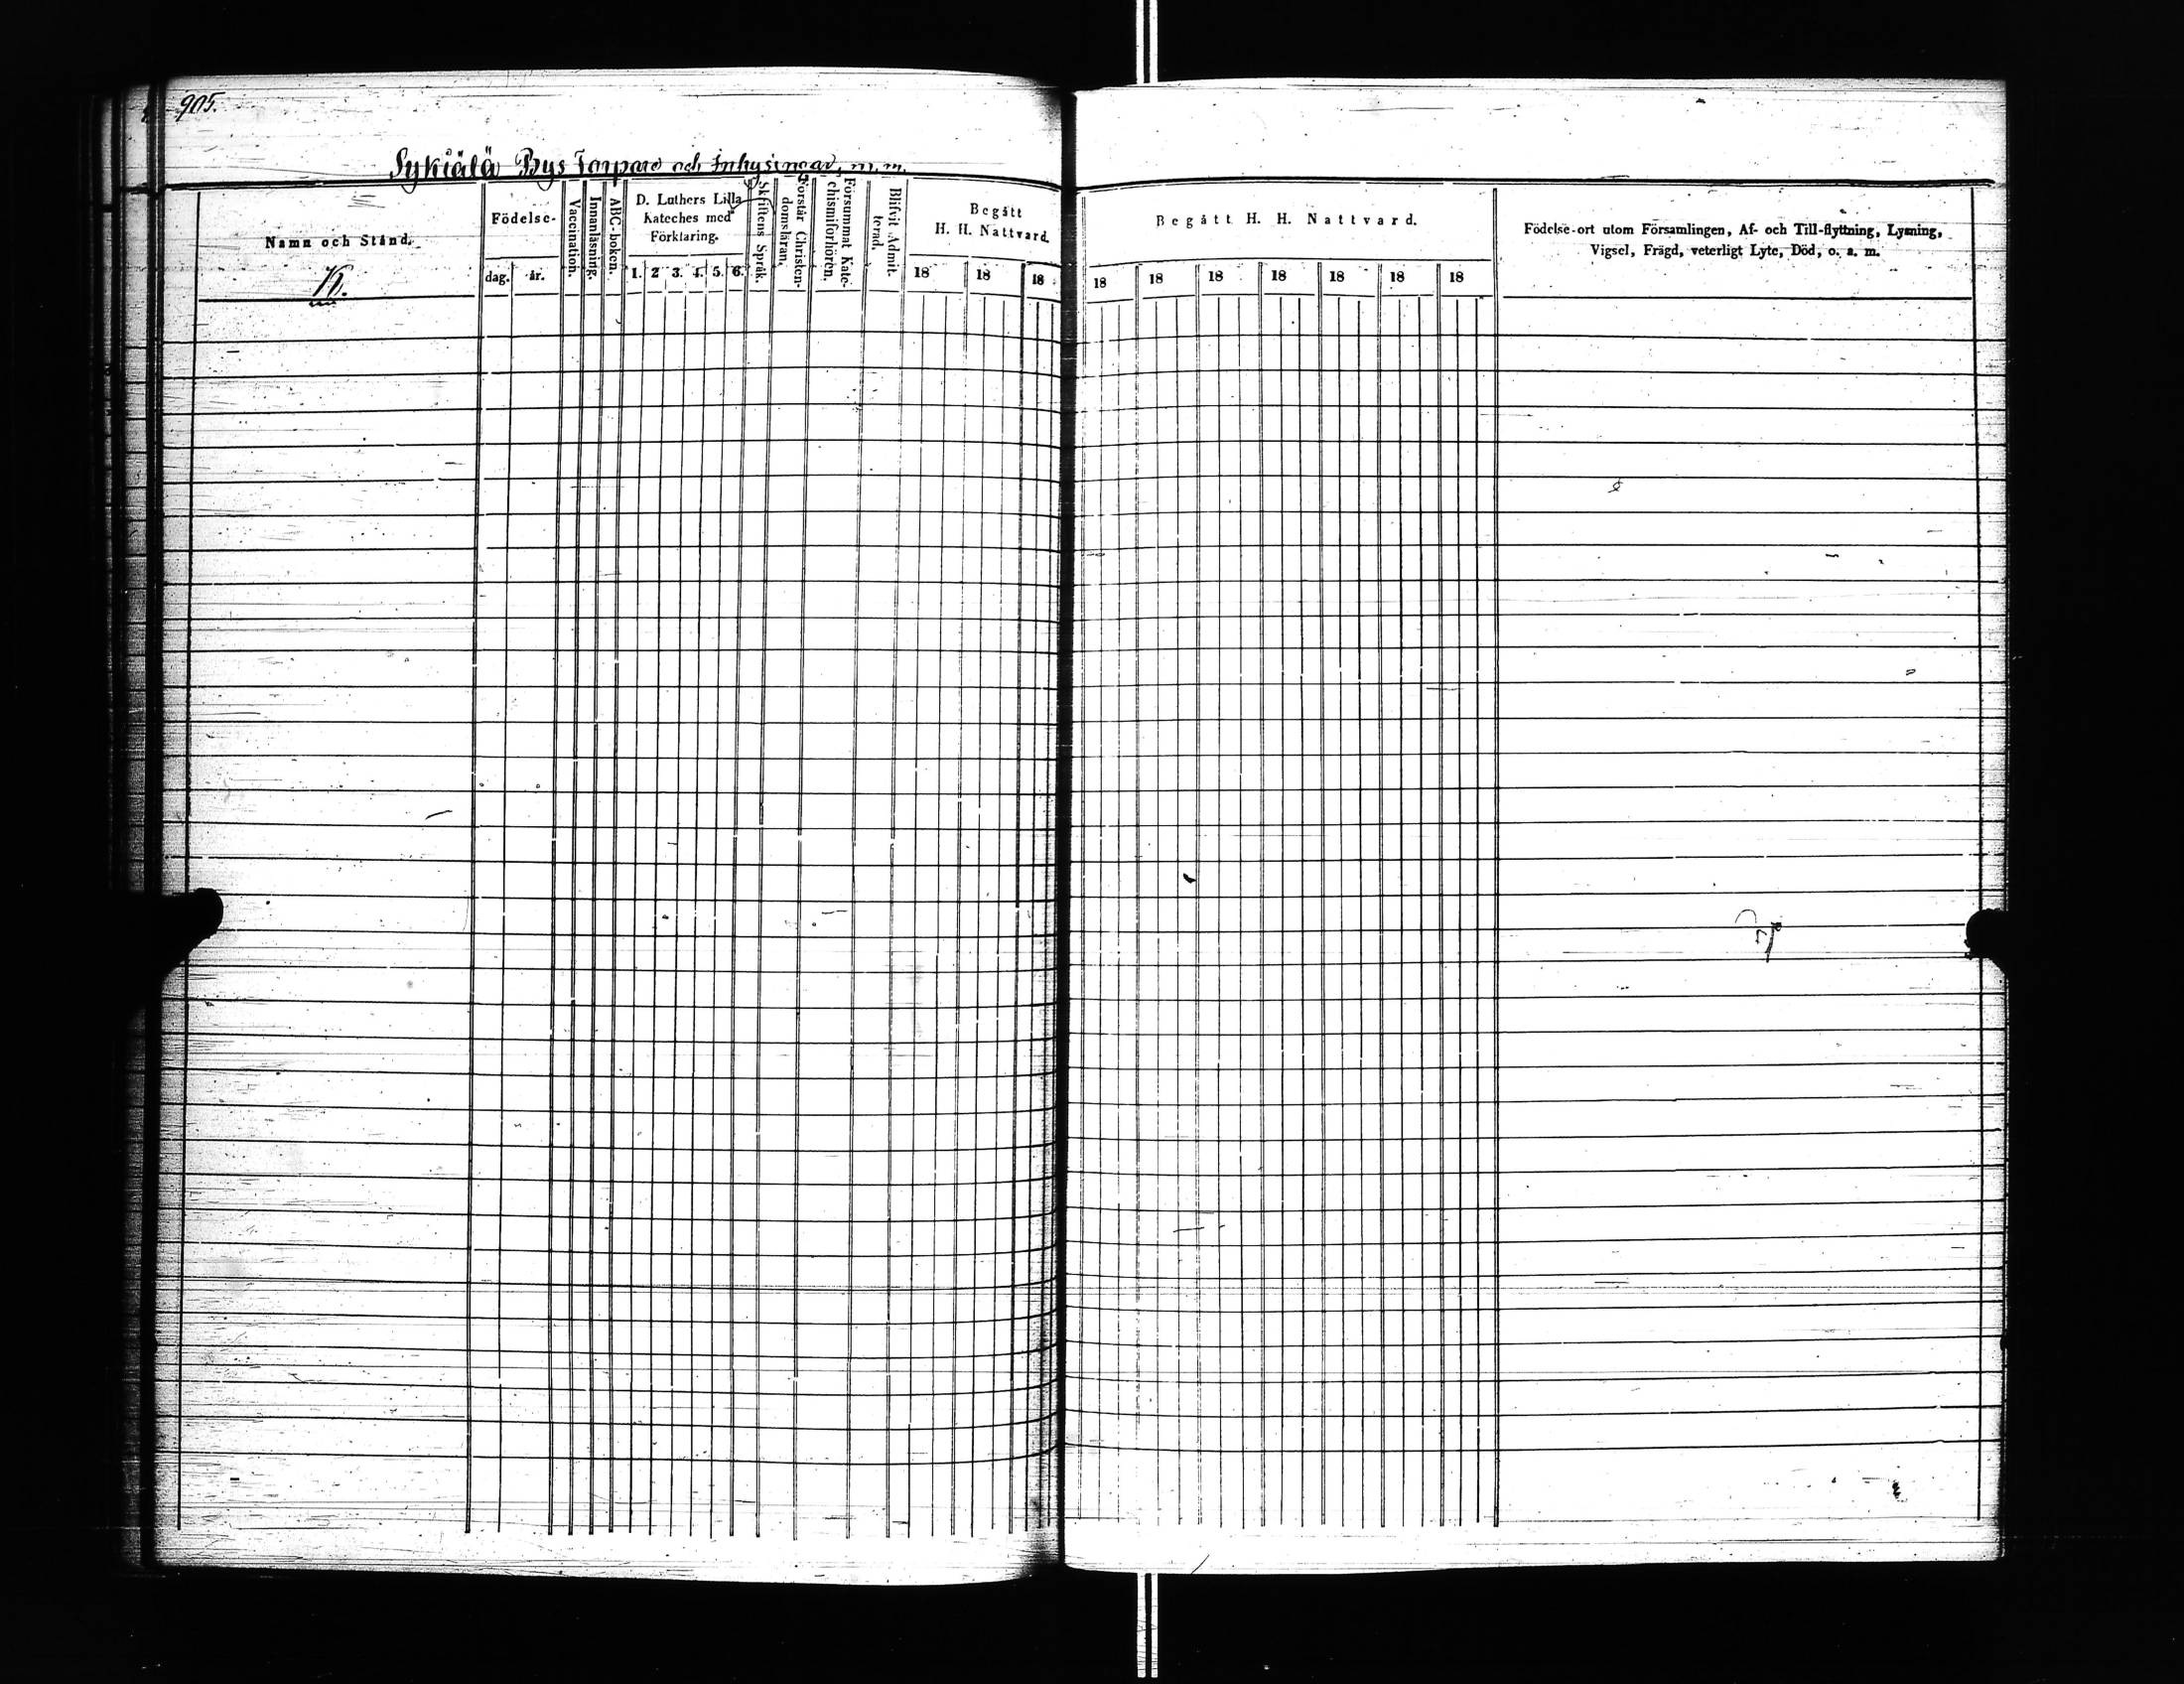 905.
Sykiälä Bys Torpare och Inhysingar, m. m.
Namn och Stånd.
K.
Födelse-
dag. år.
Vaccination.
Innanläsning.
ABC-boken.
D. Luthers Lilla
Kateches med
Förklaring.
1. 2 3. 4. 5. 6.
Skriftens Språk.
Förstår Christen-
domsläran.
Försummat Kate-
chismiförhören.
Blifvit Admit-
terad.
Begått
H. H. Nattvard.
18 18 18
Begått H. H. Nattvard.
18 18 18 18 18 18 18
Födelse-ort utom Församlingen, Af- och Till-flyttning, Lysning,
Vigsel, Frägd, veterligt Lyte, Död, o. s. m.